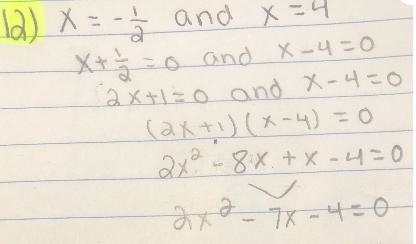 12) x = -1/2 and x = 4
x + 1/2 = 0 and x - 4 = 0
2x + 1 = 0 and x - 4 = 0
(2x + 1)(x - 4) = 0
2x² - 8x + x - 4 = 0
2x² - 7x - 4 = 0